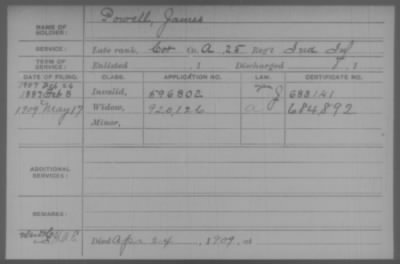 Powell, James
NAME OF SOLDIER:
SERVICE: Late rank, Cor Co. A, 25 Reg't Ind Inf
TERM OF SERVICE: Enlisted , 1 Discharged , 1
DATE OF FILING. CLASS. APPLICATION NO. LAW. CERTIFICATE NO.
1887 Feb 8 Invalid, 596802 J 683141
1909 May 17 Widow, 920,126 a 684,892
Minor,
ADDITIONAL SERVICES:
REMARKS:
Died Apr 24, 1909, at